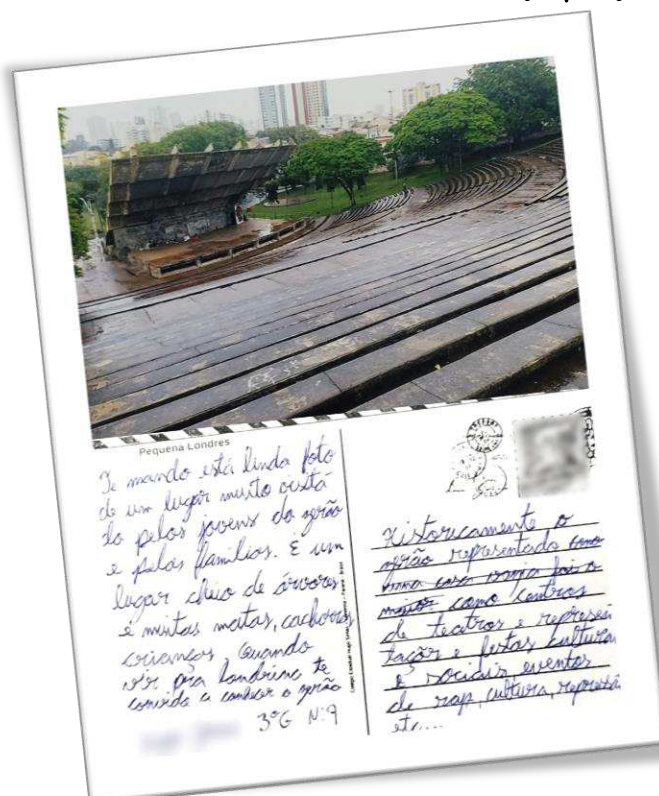 Pequena Londres
Te mando está linda foto
de um lugar muito visitá
do pelos jovens do zerão
e pelas famílias. E um
lugar cheio de árvores
e muitas matas, cachorros
crianças Quando
vir pra Londrina te
convido a conhecer o zerão
3ºG Nº9
Historicamente o
zerão representado como
como centros
de teatros e represen
tação e festas cultura
e sociais, eventos
de rap, cultura,
etc....